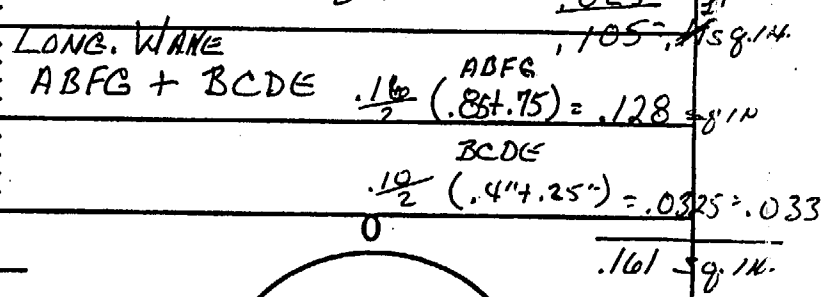 .105 = .11 sq.in.
LONG. WANE
ABFG + BCDE
ABFG
.16/2 (.85+.75) = .128 sq in
BCDE
.10/2 (.4"+.25") = .0325 = .033
0
.161 sq. in.